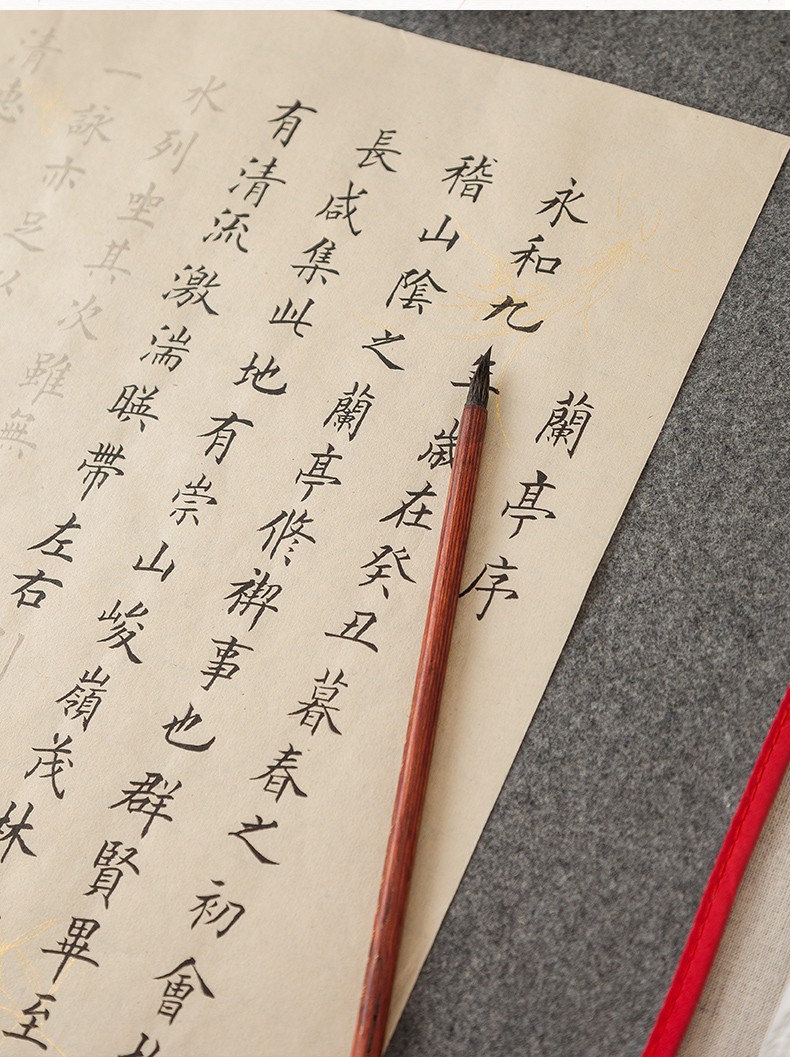 蘭亭序
永和九年歲在癸丑暮春之初會
稽山陰之蘭亭修禊事也群賢畢至
長咸集此地有崇山峻嶺茂林
有清流激湍暎帶左右
水列坐其次雖無
一詠亦足以
清惠